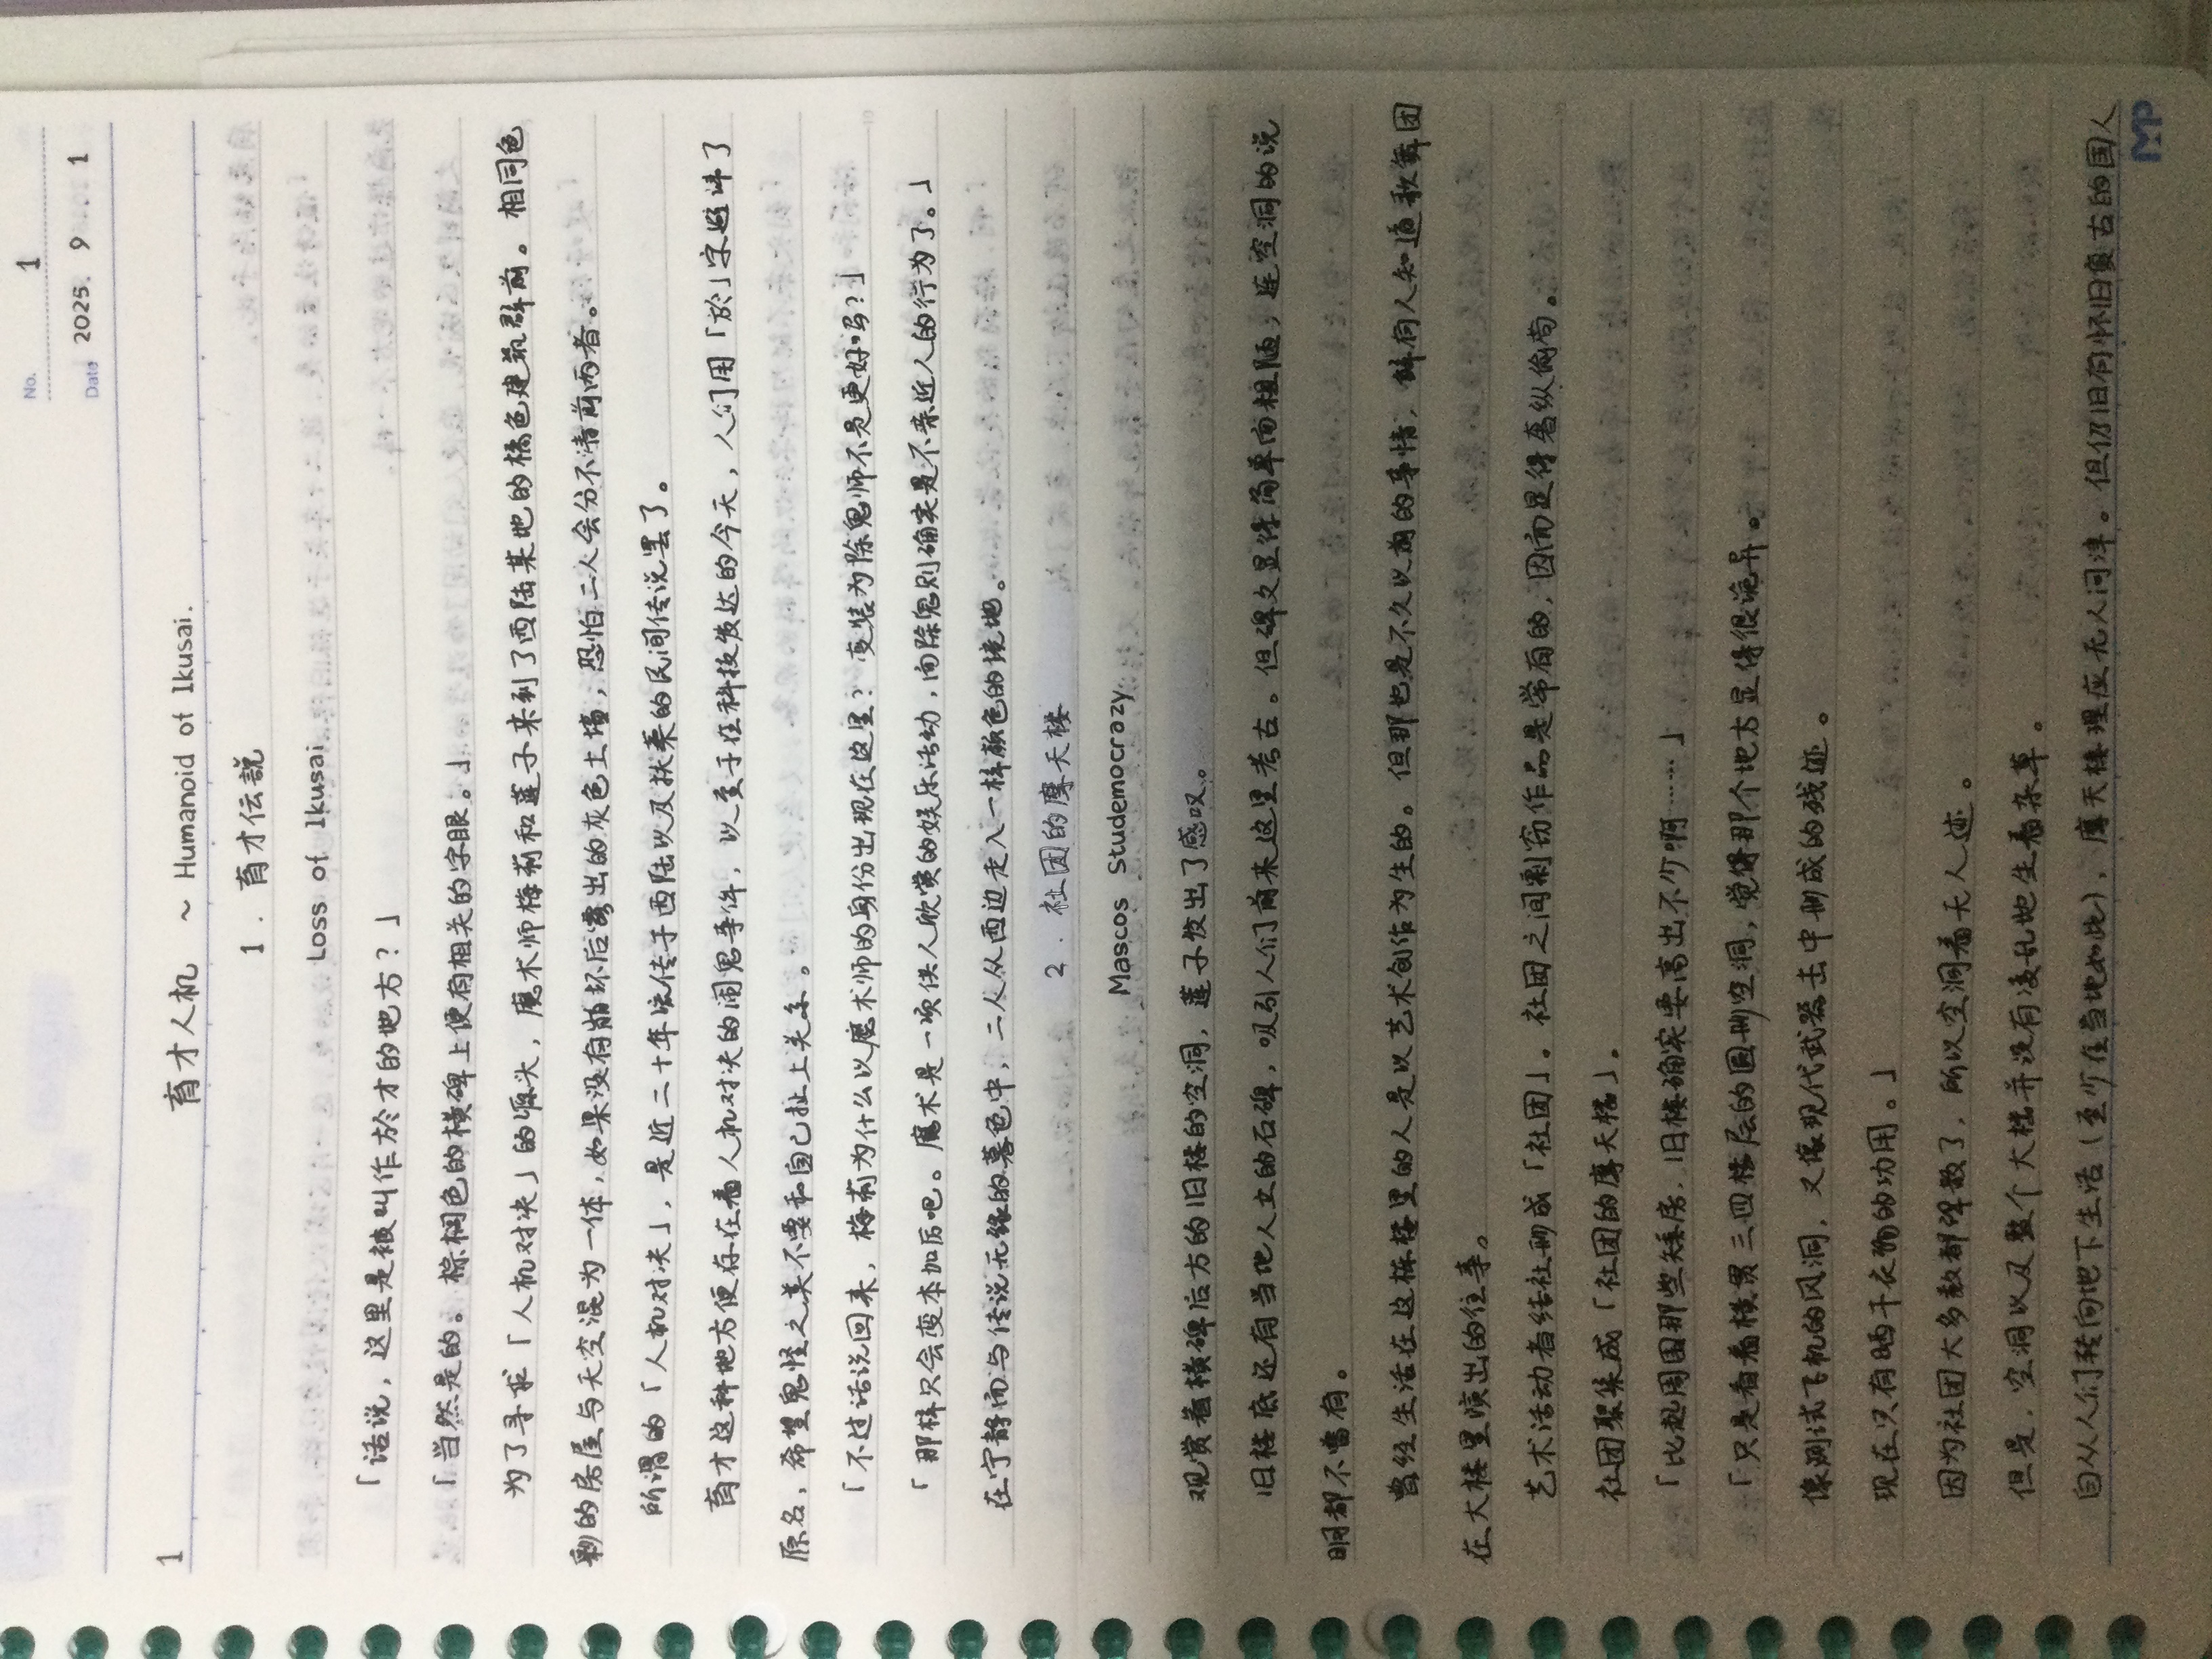 No. 1
Date 2025. 9 . 1
1 育才人机 ~ Humanoid of Ikusai.
1 . 育才伝説
Loss of Ikusai
「话说，这里是被叫作於才的地方？」
「当然是的。棕榈色的横碑上便有相关的字眼。」
为了寻求「人机对决」的源头，魔术师梅莉和莲子来到了西陆某地的橘色建筑群前。相同色
彩的房屋与天空混为一体，如果没有崩坏后露出的灰色土墙，恐怕二人会分不清前两者。
所谓的「人机对决」，是近二十年流传于西陆以及扶桑的民间传说罢了。
育才这种地方便存在着人机对决的闹鬼事件，以至于在科技发达的今天，人们用「於」字避讳了
原名，希望鬼怪之类不要和自己扯上关系。
「不过话说回来，梅莉为什么以魔术师的身份出现在这里？变装为除鬼师不是更好吗？」
「那样只会变本加厉吧。魔术是一项供人欣赏的娱乐活动，而除鬼则确实是不亲近人的行为了。」
在宁静而与传说无缘的暮色中，二人从西边走入一样颜色的境地。
2 . 社团的摩天楼
Mascos Studemocrazy.
观赏着横碑后方的旧楼的空洞，莲子发出了感叹。
旧楼底还有当地人立的石碑，吸引人们前来这里考古。但碑文显得简单而粗陋，连空洞的说
明都不曾有。
曾经生活在这栋楼里的人是以艺术创作为生的。但那也是不久以前的事情，鲜有人知道歌舞团
在大楼里演出的往事。
艺术活动者结社形成「社团」。社团之间剽窃作品是常有的，因而显得奢纵偷苟。
社团聚集成「社团的摩天楼」。
「比起周围那些矮房，旧楼确实要高出不少啊……」
「只是看着横贯三四楼层的圆形空洞，觉得那个地方显得很诡异。
像测试飞机的风洞，又像现代武器击中形成的残迹。
现在只有晒干衣物的功用。」
因为社团大多数都解散了，所以空洞着无人迹。
但是，空洞以及整个大楼并没有凌乱地生着杂草。
自从人们转向地下生活（至少在当地如此），摩天楼理应无人问津。但仍旧有怀旧复古的国人
MP